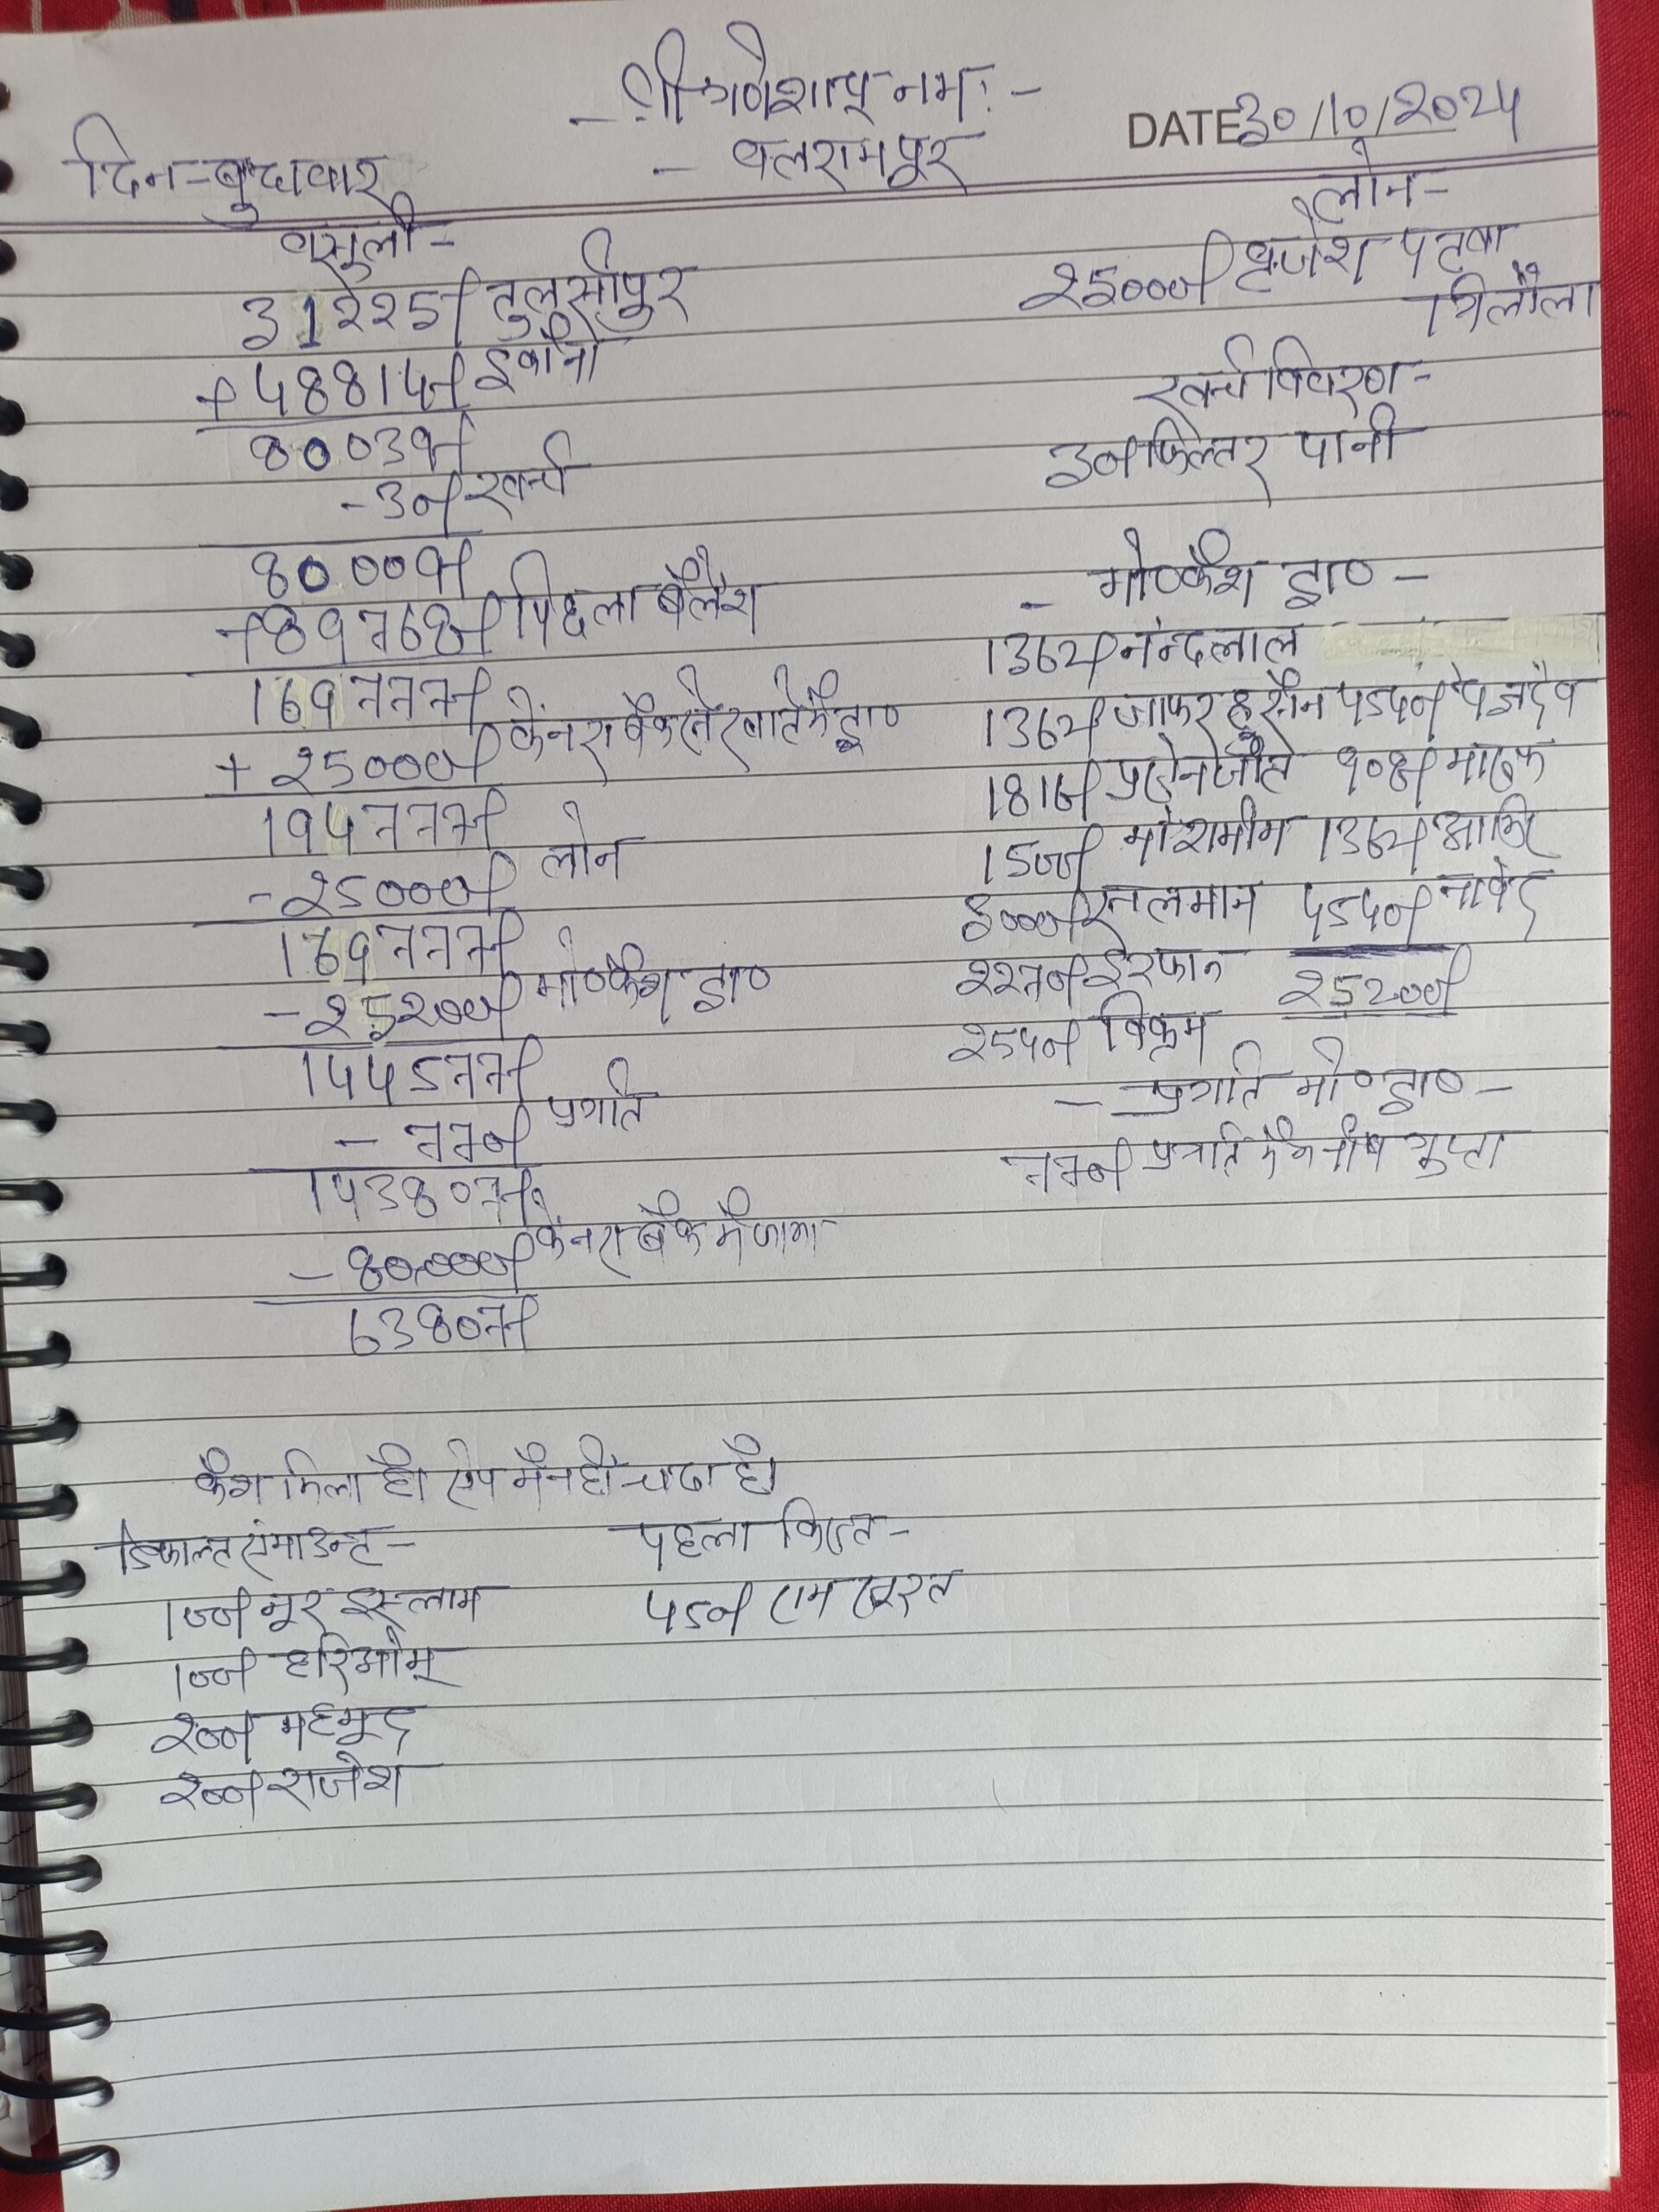 - श्री गणेशाय नमः -
DATE 30/10/2024
दिन - बुधवार
- बलरामपुर
वसुली -
31225/- तुलसीपुर
+ 48814/- इकौना
80039/-
- 30/- खर्च
80009/-
+ 89768/- पिछला बैलेंश
169777/-
+ 25000/- केनरा बैंक से खाते में ड्रा०
194777/-
- 25000/- लोन
169777/-
- 25200/- गो०कैश ड्रा०
144577/-
- 770/- प्रगति
143807/-
- 80000/- केनरा बैंक में जमा
63807/-
लोन -
25000/- बृजेश पटवा
गिलौला
खर्च विवरण -
30/- फिल्टर पानी
- गो०कैश ड्रा० -
1362/- नन्दलाल
1362/- जाफर हुसैन 4540/-
1816/- 908/-
1500/- मो शमीम 1362/-
8000/- सलमान 4540/- जावेद
2270/- इरफान 25200/-
2540/- विक्रम
- प्रगति गो० ड्रा० -
770/- प्रगति गुप्ता
कैश मिला है। ऐप में नहीं चढा है।
डिफाल्ट एमाउन्ट -
पहला किस्त -
100/- नूर इस्लाम
450/- राम सूरत
100/- हरिओम्
200/- महमूद
200/- राजेश